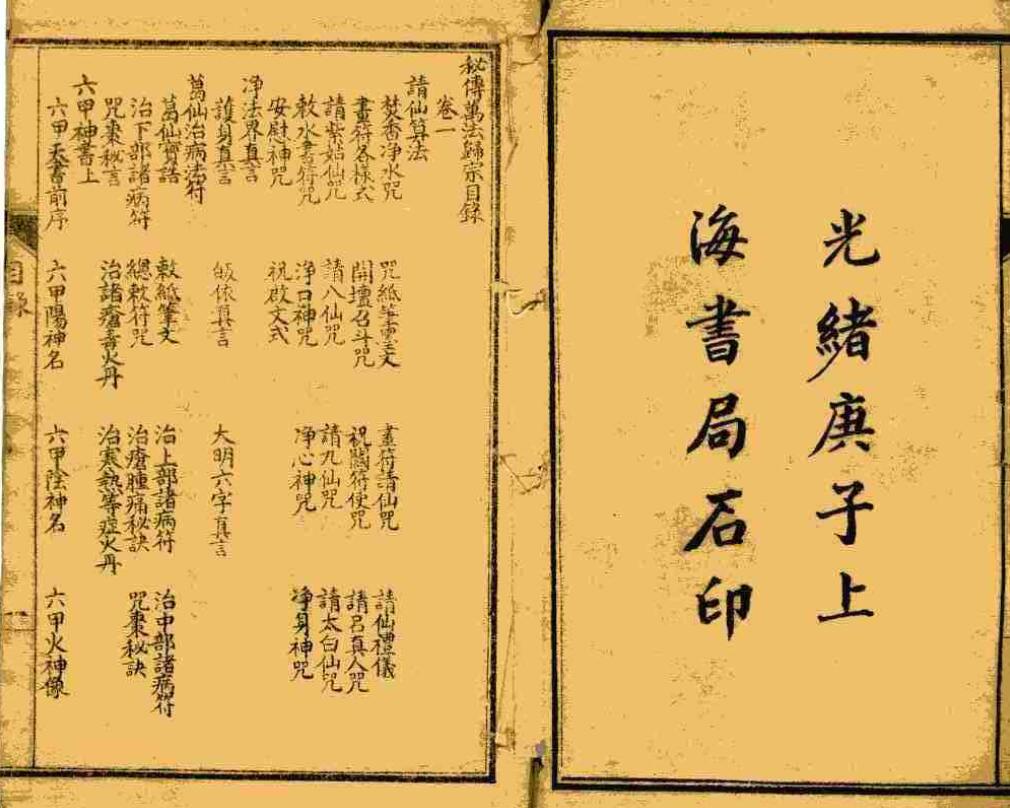 光緒庚子上
海書局石印
秘傳萬法歸宗目錄
卷一
請仙箕法
焚香淨水咒 咒紙筆雲文 畫符請仙咒 請仙禮儀
畫符各樣式 開壇召斗咒 祝闘符使咒 請呂真人咒
請紫姑仙咒 請八仙咒 請九仙咒 請太白仙咒
敕水書符咒 淨口神咒 淨心神咒 淨身神咒
安慰神咒 祝啟文式
淨法界真言
護身真言 皈依真言 大明六字真言
葛仙治病法符
葛仙寶誥 敕紙筆文 治上部諸病符 治中部諸病符
治下部諸病符 總敕符咒 治瘡腫痛秘訣 咒棗秘訣
咒棗秘言 治諸瘡毒火丹 治寒熱等症火丹
六甲神書上
六甲天書前序 六甲陽神名 六甲陰神名 六甲火神像
目錄
一